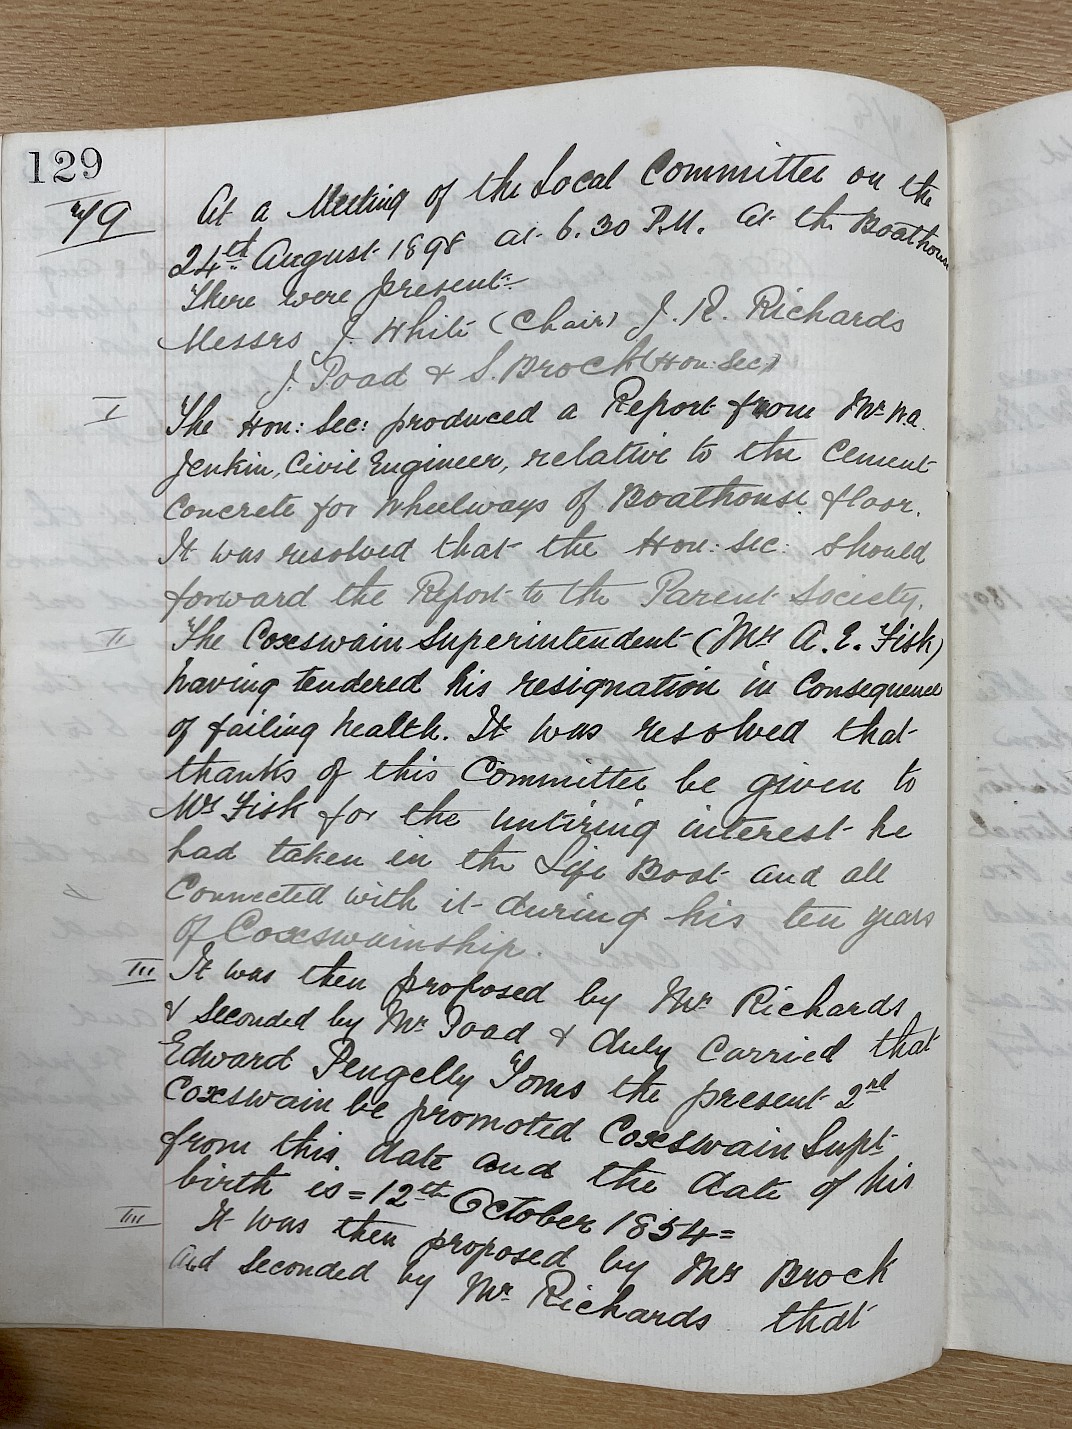 129
79
At a Meeting of the Local Committee on the
24th August 1898 at 6.30 P.M. at the Boathouse
There were present:-
Messrs J. White (Chair) J. R. Richards
J. Toad & S. Brock (Hon: Sec)
I The Hon: Sec: produced a Report from Mr W.A.
Jenkin, Civil Engineer, relative to the Cement
Concrete for Wheelways of Boathouse floor.
It was resolved that the Hon: Sec: should
forward the Report to the Parent Society.
II The Coxswain Superintendent (Mr A. E. Fisk)
having tendered his resignation in Consequence
of failing health. It was resolved that
thanks of this Committee be given to
Mr Fisk for the untiring interest he
had taken in the Life Boat and all
Connected with it during his ten years
of Coxswainship.
III It was then proposed by Mr Richards
& Seconded by Mr Toad & duly Carried that
Edward Pengelly Toms the present 2nd
Coxswain be promoted Coxswain Supt
from this date and the date of his
birth is = 12th October 1854 =
IIII It was then proposed by Mr Brock
and Seconded by Mr Richards that